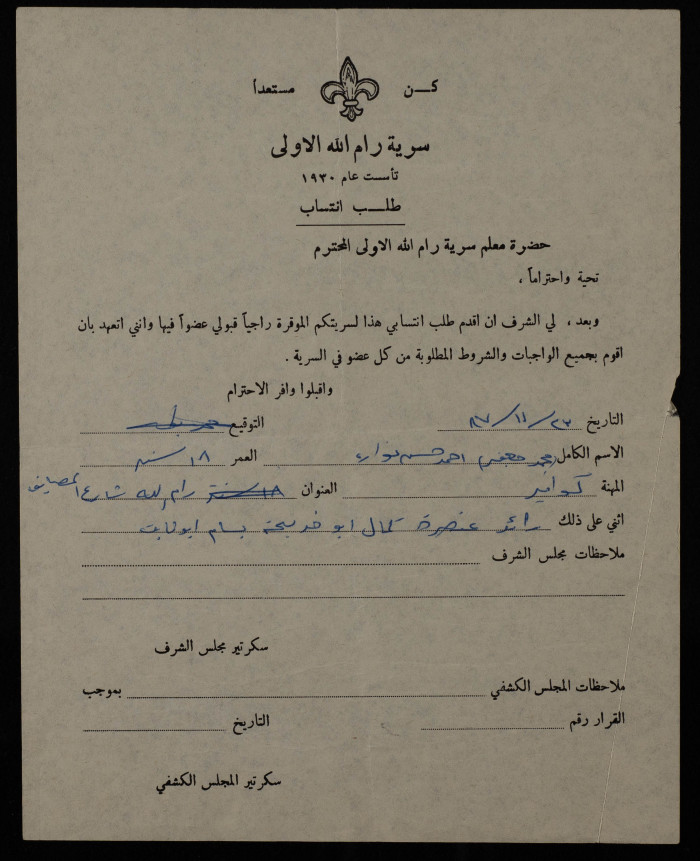 كـــن مستعداً
سرية رام الله الاولى
تأسست عام ١٩٣٠
طلـــب انتساب
حضرة معلم سرية رام الله الاولى المحترم
تحية واحتراماً ،
وبعد ، لي الشرف ان اقدم طلب انتسابي هذا لسريتكم الموقرة راجياً قبولي عضواً فيها وانني اتعهد بان
اقوم بجميع الواجبات والشروط المطلوبة من كل عضو في السرية .
واقبلوا وافر الاحترام
التاريخ ٢٣/١١/٨٧ التوقيع
الاسم الكامل محمد احمد حسن العمر ١٨ سنة
المهنة كوافير العنوان ١٨ سنة رام الله شارع
اثني على ذلك رائد عنصرة كمال ابو خديجة بسام ابو
ملاحظات مجلس الشرف
سكرتير مجلس الشرف
ملاحظات المجلس الكشفي بموجب
القرار رقم التاريخ
سكرتير المجلس الكشفي